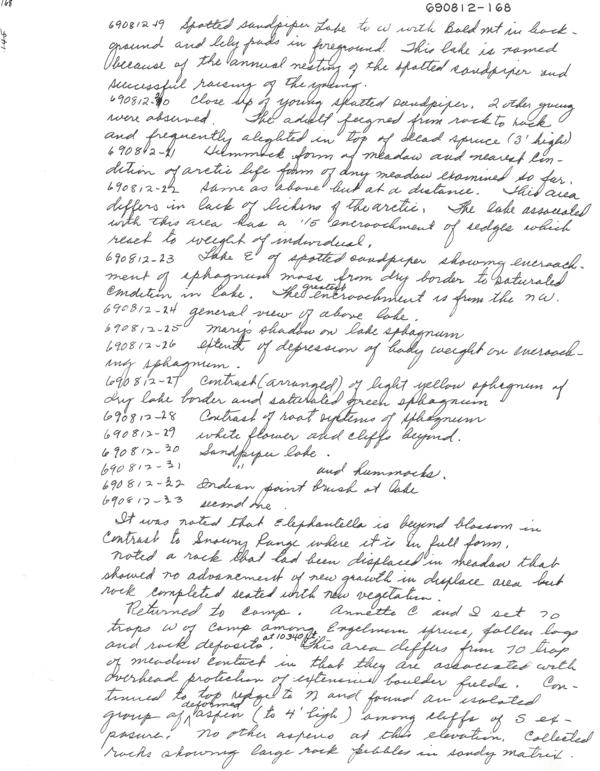 690812-168
168
690812-19 Spotted sandpiper Lake to W with Bald Mt in back-
ground and lily pads in foreground. This lake is named
because of the annual nesting of the spotted sandpiper and
successful raising of the young.
690812-20 Close up of young spotted sandpiper. 2 other young
were observed. The adult feigned from rock to rock
and frequently alighted in top of dead spruce (3' high)
690812-21 Hummock form of meadow and nearest con-
dition of arctic life form of any meadow examined so far.
690812-22 Same as above but at a distance. This area
differs in lack of lichens of the arctic. The lake associated
with this area has a 15' encroachment of sedges which
reset to weight of individual.
690812-23 Lake E of spotted sandpiper showing encroach-
ment of sphagnum moss from dry border to saturated
condition in lake. The greatest encroachment is from the NW.
690812-24 general view of above lake.
690812-25 Mary's shadow on lake sphagnum
690812-26 extent of depression of body weight on encroach-
ing sphagnum.
690812-27 Contrast (arranged) of light yellow sphagnum of
dry lake border and saturated green sphagnum
690812-28 Contrast of root systems of sphagnum
690812-29 white flower and cliffs beyond.
690812-30 Sandpiper lake.
690812-31 " and hummocks.
690812-32 Indian paint brush at lake
690812-33 second one.
It was noted that Elephantella is beyond blossom in
contrast to Snowy Range where it is in full form.
Noted a rock that had been displaced in meadow that
showed no advancement of new growth in displace area but
rock completed seated with new vegetation.
Returned to camp. Annette C and I set 70
traps W of Camp among Engelmann spruce, fallen logs
and rock deposits at 10340 ft. This area differs from 70 trap
of meadow contact in that they are associated with
overhead protection of extensive boulder fields. Con-
tinued to top ridge to N and found an isolated
group of deformed aspen (to 4' high) among cliffs of S ex-
posure. No other aspens at this elevation. Collected
rocks showing large rock pebbles in sandy matrix.